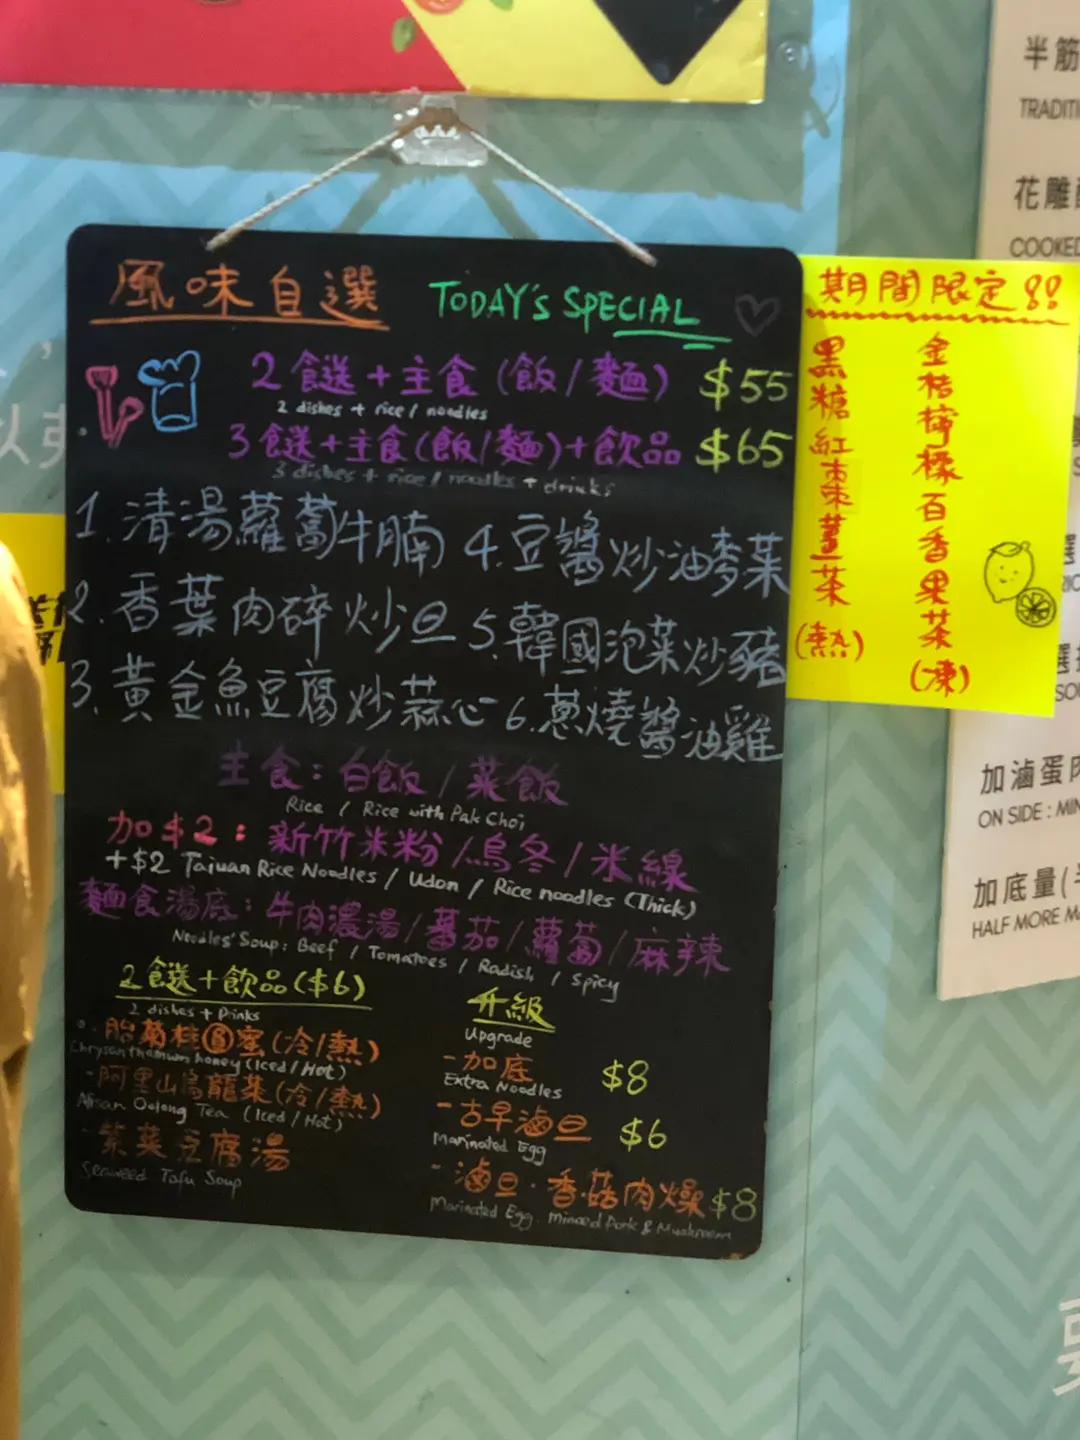 風味自選 TODAY'S SPECIAL
2餸+主食(飯/麵) $55
2 dishes + rice/noodles
3餸+主食(飯/麵)+飲品 $65
3 dishes + rice/noodles + drinks
1.清湯蘿蔔牛腩
2.香葉肉碎炒旦
3.黃金魚豆腐炒蒜心
4.豆醬炒油麥菜
5.韓國泡菜炒豬
6.蔥燒醬油雞
主食:白飯/菜飯
Rice / Rice with Pak Choi
加$2:新竹米粉/烏冬/米線
+$2 Taiwan Rice Noodles / Udon / Rice noodles (Thick)
麵食湯底:牛肉濃湯/蕃茄/蘿蔔/麻辣
Noodles' Soup: Beef / Tomatoes / Radish / Spicy
2餸+飲品($6)
2 dishes + Drinks
胎菊桂圓蜜(冷/熱)
Chrysanthamum honey (Iced/Hot)
-阿里山烏龍茶(冷/熱)
Alisan Oolong Tea (Iced/Hot)
-紫菜豆腐湯
Seaweed Tofu Soup
升級
Upgrade
-加底 $8
Extra Noodles
-古早滷旦 $6
Marinated Egg
-滷旦·香菇肉燥 $8
Marinated Egg. Minced Pork & Mushroom
期間限定!!
黑糖紅棗薑茶(熱)
金桔檸檬百香果茶(凍)
半筋
TRADITI
花雕
COOKED
加滷蛋肉
ON SIDE : MIN
加底量(半
HALF MORE MA